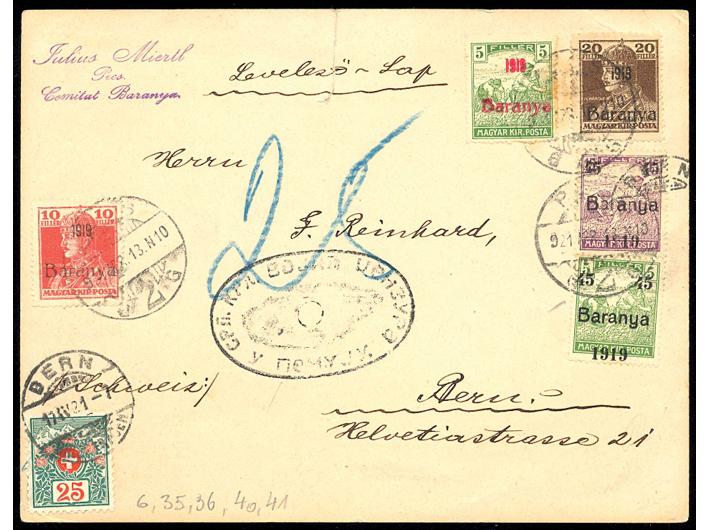 Julius Miertl
Pécs.
Comitat Baranya.
Levelező-Lap
5 FILLÉR 5
1919
Baranya
MAGYAR KIR. POSTA
20 20
FILLÉR FILLÉR
1919
Baranya
MAGYAR KIR. POSTA
Herrn
25
F. Reinhard,
45 FILLÉR 45
Baranya
1919
MAGYAR KIR. POSTA
10 10
FILLÉR FILLÉR
1919
Baranya
MAGYAR KIR. POSTA
45 45
Baranya
MAGYAR KIR. POSTA
1919
BERN
(Schweiz:)
Bern.
Helvetiastrasse 21
25
6, 35, 36, 40, 41